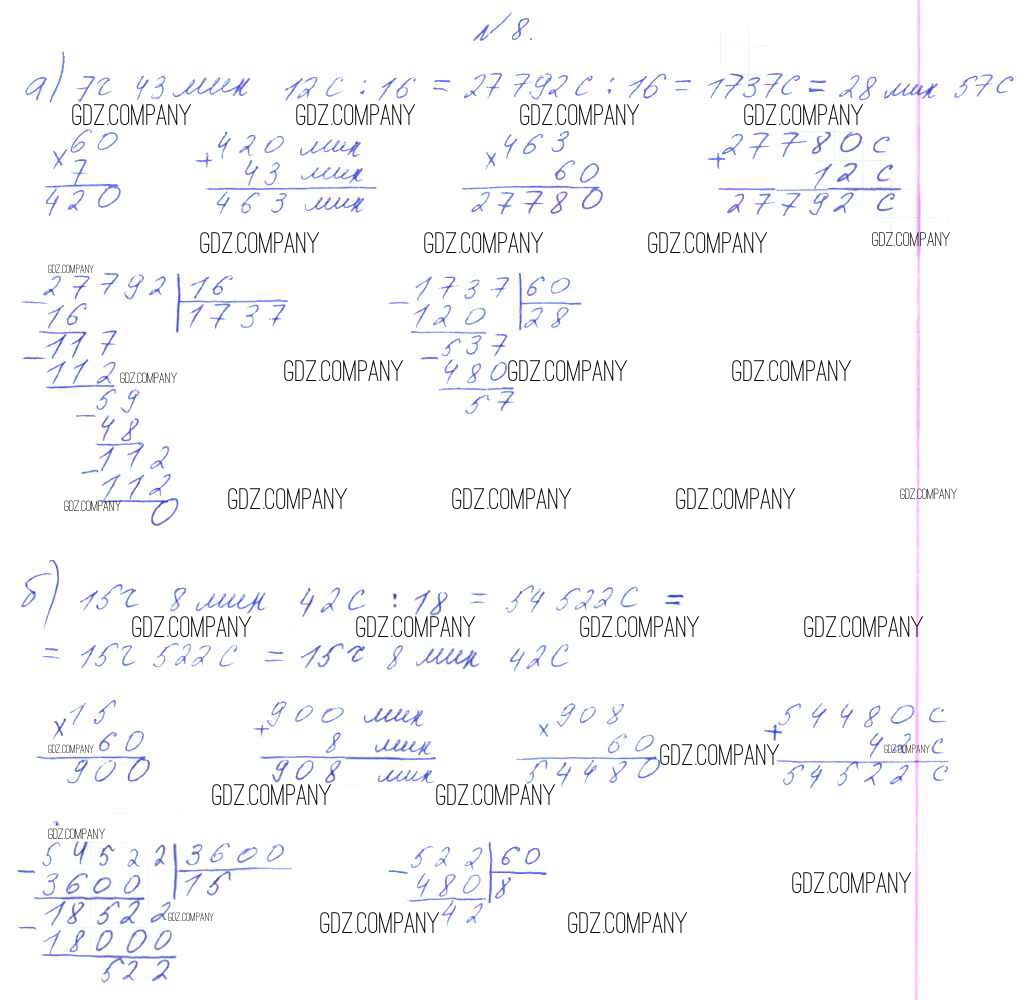 № 8.
а) 7ч 43 мин 12с : 16 = 27792с : 16 = 1737с = 28 мин 57с
GDZ.COMPANY GDZ.COMPANY GDZ.COMPANY GDZ.COMPANY
60 420 мин 463 27780 с
× 7 + 43 мин × 60 + 12 с
420 463 мин 27780 27792 с
GDZ.COMPANY GDZ.COMPANY GDZ.COMPANY GDZ.COMPANY
GDZ.COMPANY
− 27792 | 16 − 1737 | 60
16 | 1737 120 | 28
− 117 − 537
112 480
GDZ.COMPANY GDZ.COMPANY GDZ.COMPANY GDZ.COMPANY
− 59 57
48
− 112
112
GDZ.COMPANY GDZ.COMPANY GDZ.COMPANY GDZ.COMPANY GDZ.COMPANY
0
б) 15ч 8 мин 42с : 18 = 54522с =
GDZ.COMPANY GDZ.COMPANY GDZ.COMPANY GDZ.COMPANY
= 15ч 522с = 15ч 8 мин 42с
× 15 + 900 мин × 908 + 54480 с
60 8 мин 60 42 с
GDZ.COMPANY GDZ.COMPANY GDZ.COMPANY
900 908 мин 54480 54522 с
GDZ.COMPANY GDZ.COMPANY
GDZ.COMPANY
− 54522 | 3600 − 522 | 60
3600 | 15 480 | 8
GDZ.COMPANY
− 18522 42
GDZ.COMPANY GDZ.COMPANY GDZ.COMPANY
18000
522